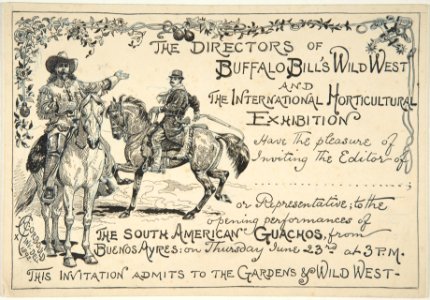 THE DIRECTORS OF
BUFFALO BILL'S WILD WEST
AND
THE INTERNATIONAL HORTICULTURAL
EXHIBITION
Have the pleasure of
Inviting The Editor of
or Representative, to the
opening performances of
THE SOUTH AMERICAN GUACHOS, from
BUENOS AYRES: on Thursday June 23rd at 3 P.M.
THIS INVITATION ADMITS TO THE GARDENS & WILD WEST-